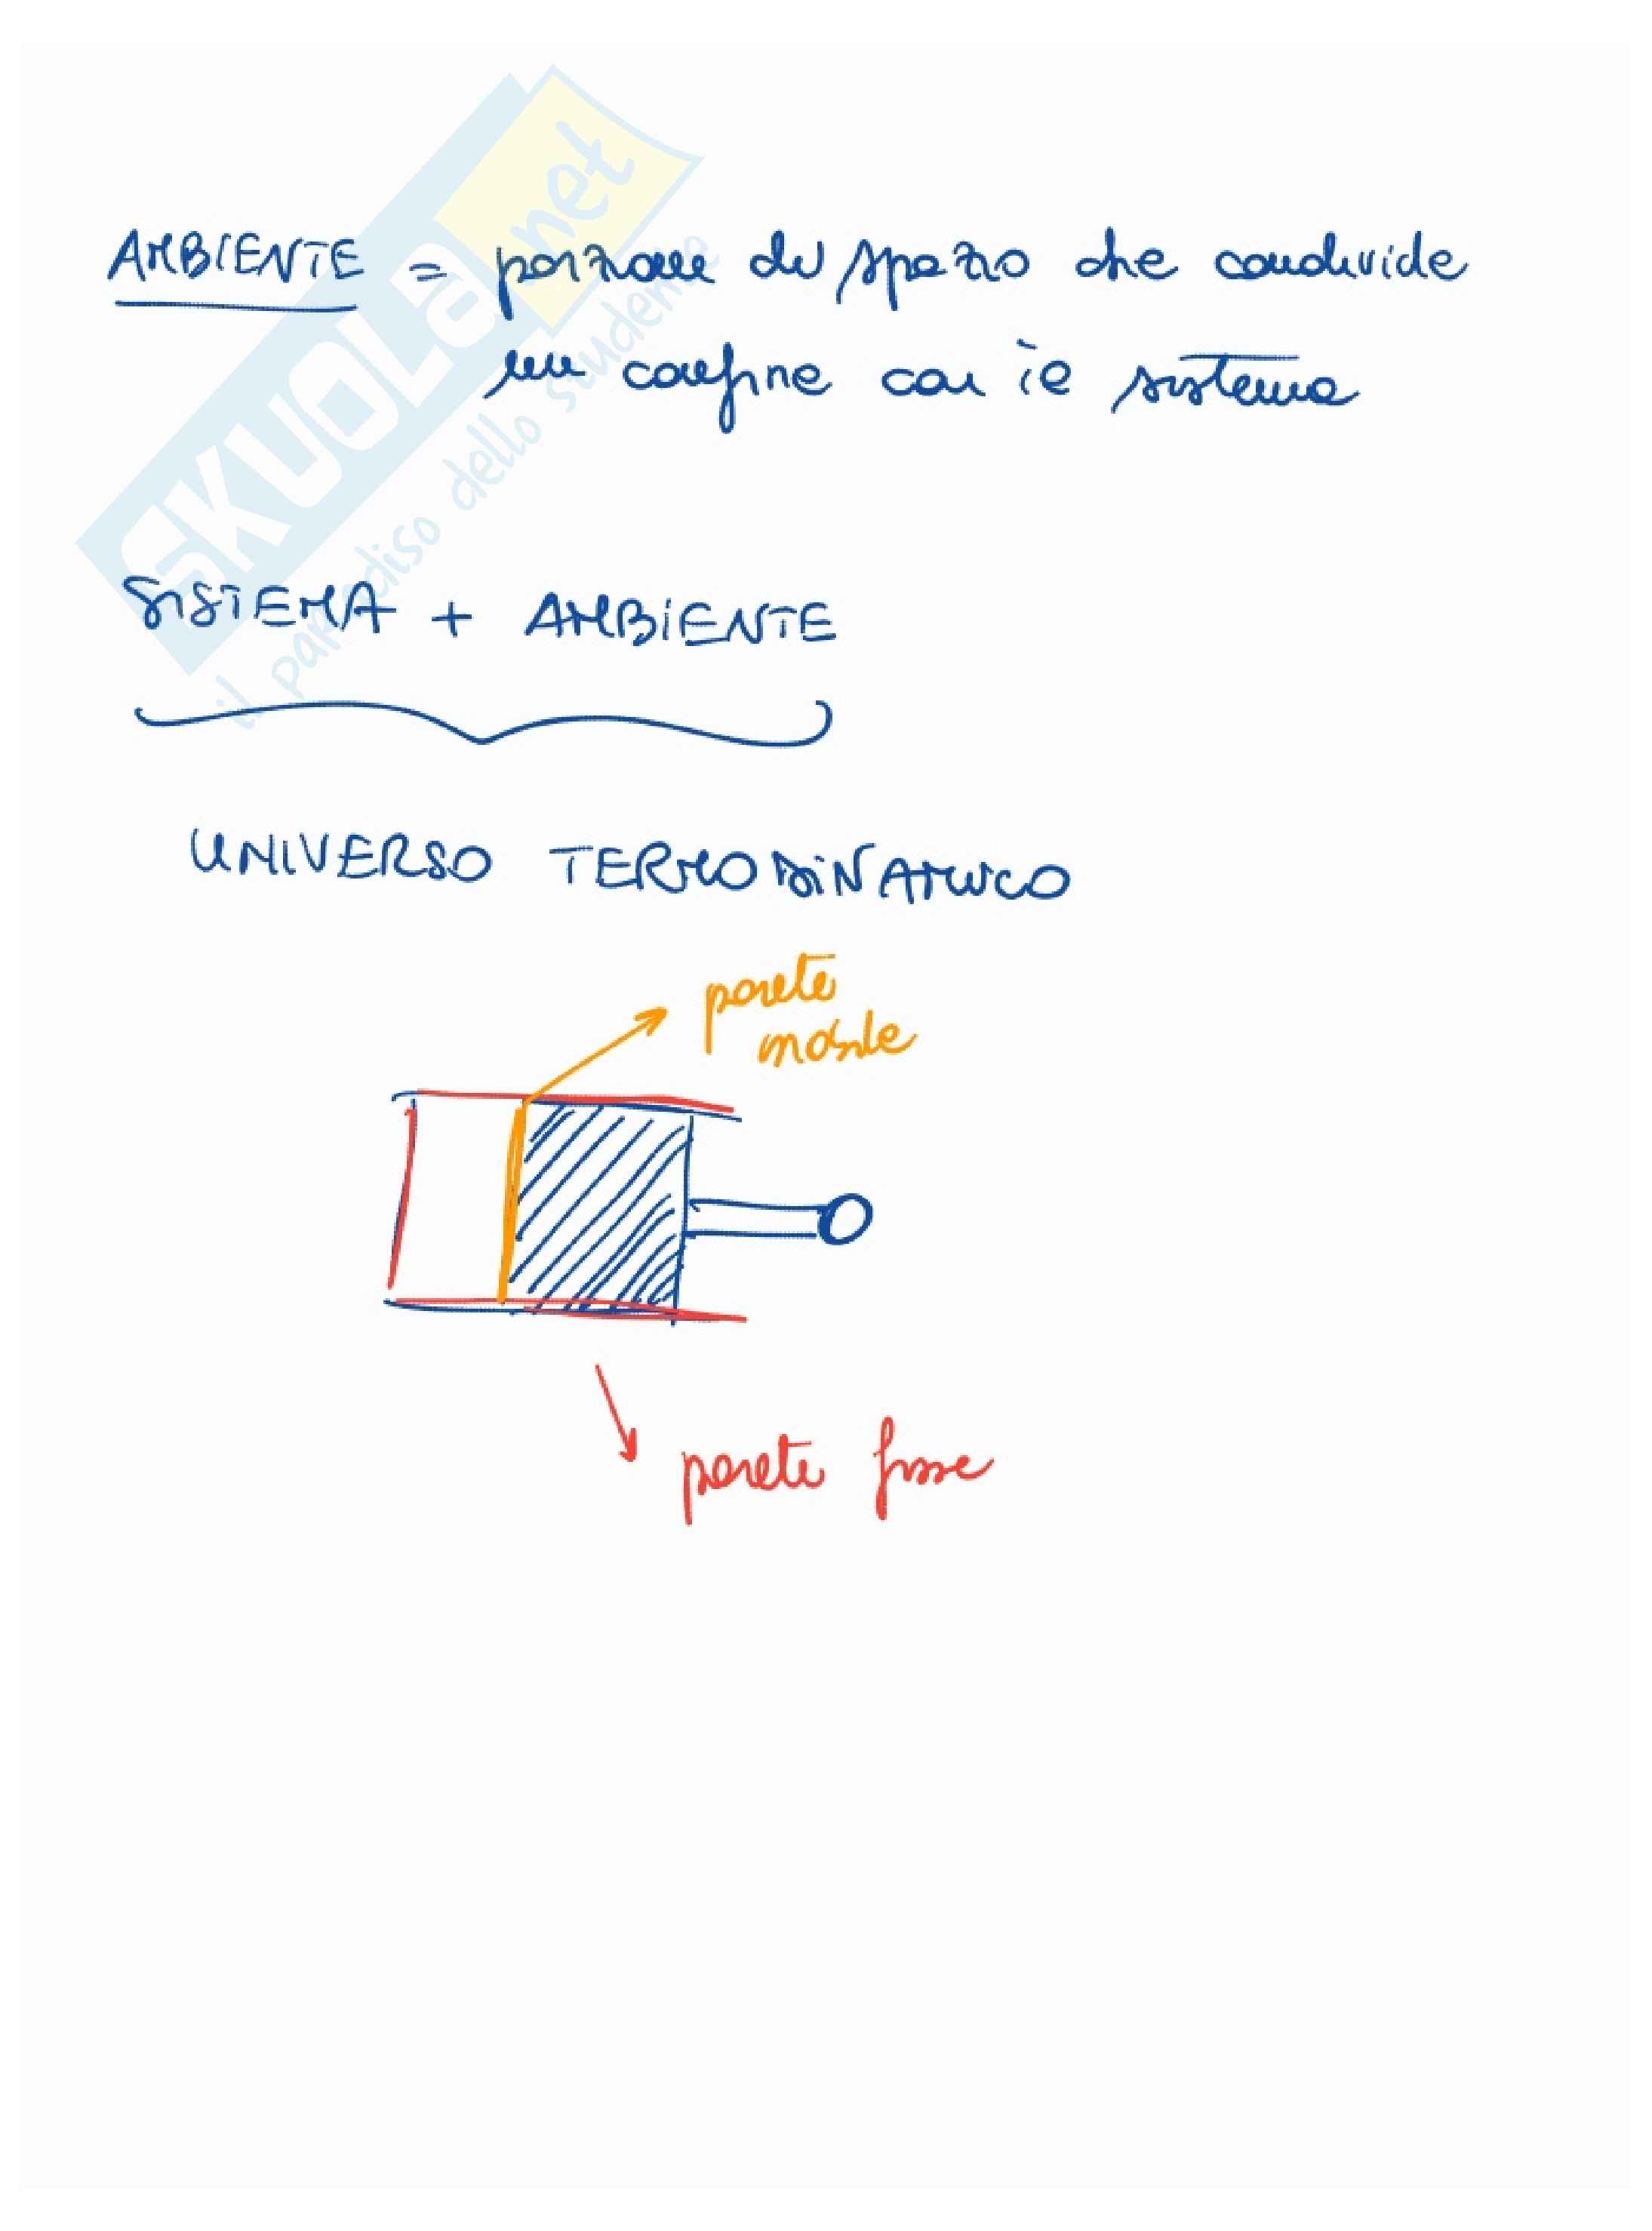 AMBIENTE = porzione di spazio che condivide
un confine con il sistema
SISTEMA + AMBIENTE
UNIVERSO TERMODINAMICO
parete
mobile
pareti fisse
SKUOLA.net
il paradiso dello studente